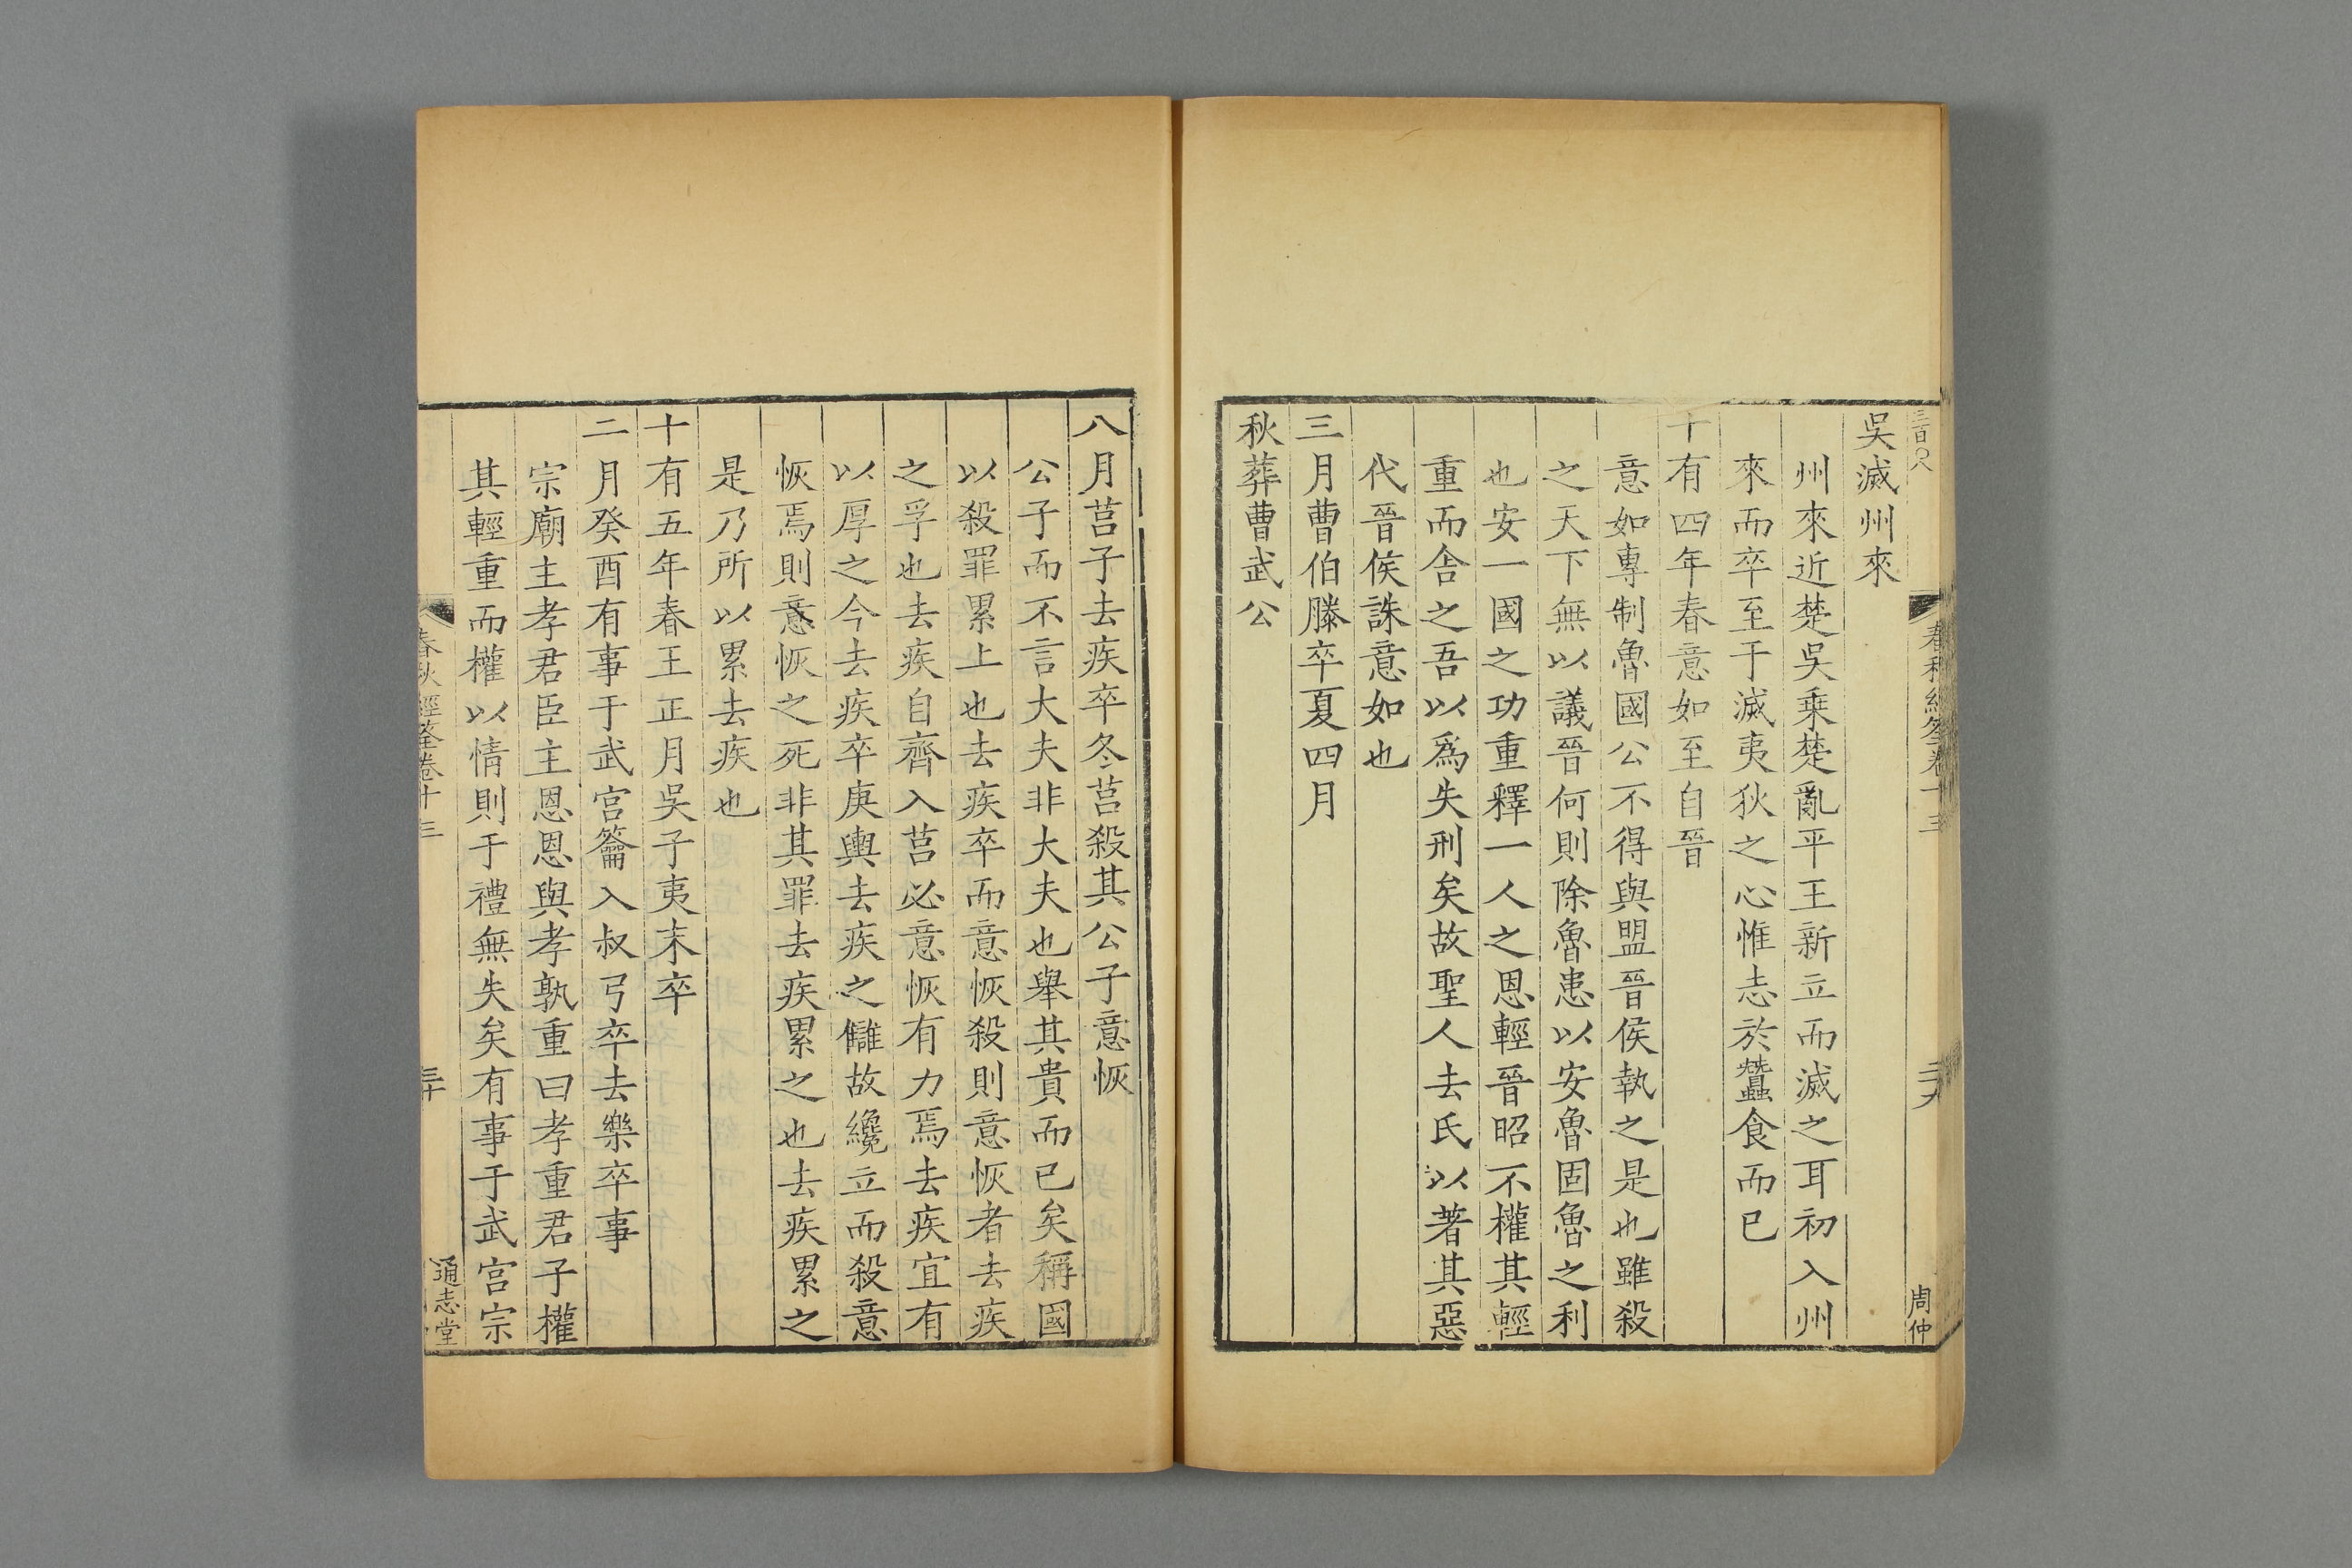 春秋經筌卷十三
周仲
吳滅州來
州來近楚吳乗楚亂平王新立而滅之耳初入州
來而卒至于滅夷狄之心惟志於蠶食而已
十有四年春意如至自晉
意如專制魯國公不得與盟晉侯執之是也雖殺
之天下無以議晉何則除魯患以安魯固魯之利
也安一國之功重釋一人之恩輕晉昭不權其輕
重而舍之吾以爲失刑矣故聖人去氏以著其惡
代晉侯誅意如也
三月曹伯滕卒夏四月
秋葬曹武公
八月莒子去疾卒冬莒殺其公子意恢
公子而不言大夫非大夫也舉其貴而已矣稱國
以殺罪累上也去疾卒而意恢殺則意恢者去疾
之孚也去疾自齊入莒必意恢有力焉去疾宜有
以厚之今去疾卒庚輿去疾之讎故纔立而殺意
恢焉則意恢之死非其罪去疾累之也去疾累之
是乃所以累去疾也
十有五年春王正月吳子夷末卒
二月癸酉有事于武宫籥入叔弓卒去樂卒事
宗廟主孝君臣主恩恩與孝孰重曰孝重君子權
其輕重而權以情則于禮無失矣有事于武宫宗
春秋經筌卷十三
三十
通志堂